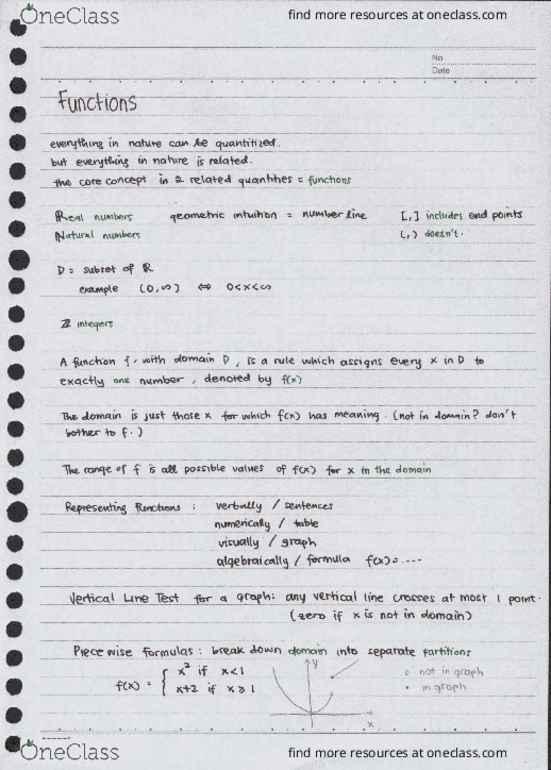 OneClass find more resources at oneclass.com
No
Date
Functions
everything in nature can be quantitized.
but everything in nature is related.
the core concept in 2 related quantities = functions
Real numbers geometric intuition = number line [,] includes end points
Natural numbers (,) doesn't.
D = subset of ℝ
example (0,∞) ⇔ 0<x<∞
ℤ integers
A function f, with domain D, is a rule which assigns every x in D to
exactly one number, denoted by f(x)
The domain is just those x for which f(x) has meaning. (not in domain? don't
bother to f.)
The range of f is all possible values of f(x) for x in the domain
Representing Functions : verbally / sentences
numerically / table
visually / graph
algebraically / formula f(x)=....
Vertical Line Test for a graph: any vertical line crosses at most 1 point.
(zero if x is not in domain)
Piecewise formulas : break down domain into separate partitions
f(x) = { x² if x<1
x+2 if x≥1
y
x
○ not in graph
• in graph
OneClass find more resources at oneclass.com